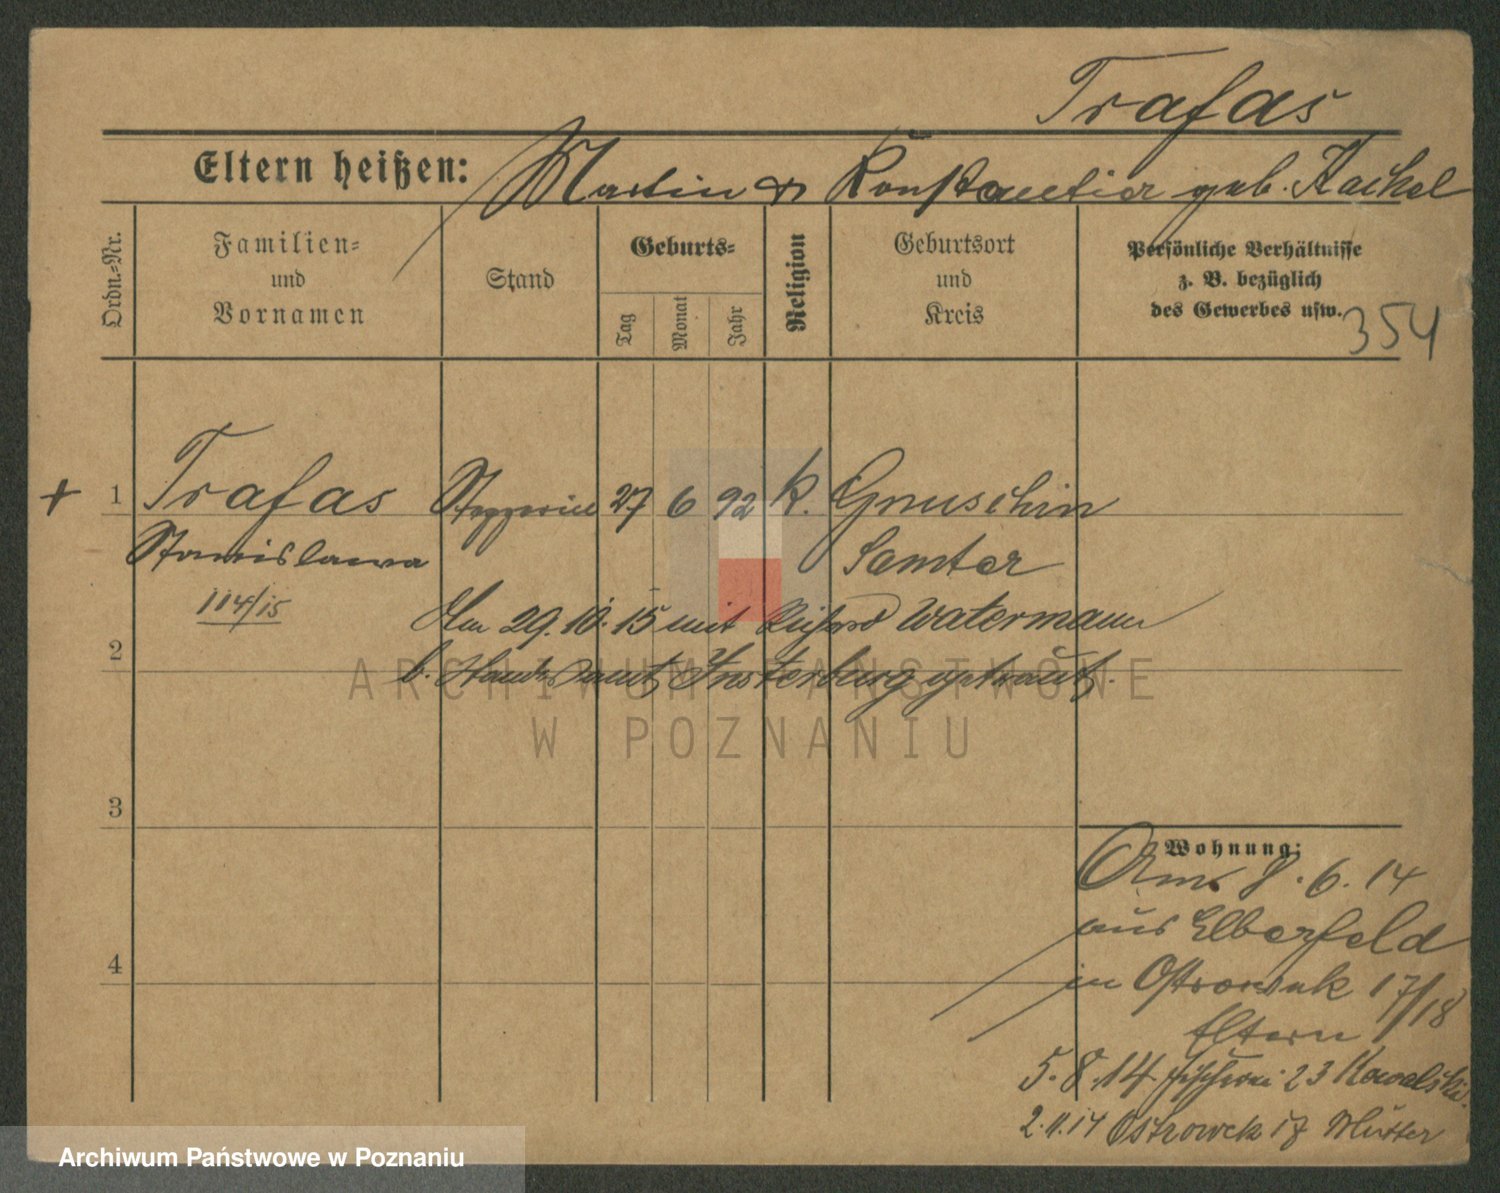 Trafas
Eltern heißen: Martin & Konstantia geb. Kackel
Ordn.-Nr.
Familien-
und
Vornamen
Stand
Geburts-
Tag
Monat
Jahr
Religion
Geburtsort
und
Kreis
Persönliche Verhältnisse
z. B. bezüglich
des Gewerbes usw.
354
+ 1 Trafas Stepperin 27 6 92 k. Gnuschin
Stanislawa Samter
114/15
Am 29.10.15 mit Richard Watermann
2
b. Standesamt Insterburg getraut.
3
Wohnung:
Anm. 8.6.14
aus Elberfeld
4
in Ostrowek 17/18
Eltern
5.8.14 Fischerei 23 Kowalski.
2.11.14 Ostrowek 17 Mutter
ARCHIWUM PAŃSTWOWE
W POZNANIU
Archiwum Państwowe w Poznaniu